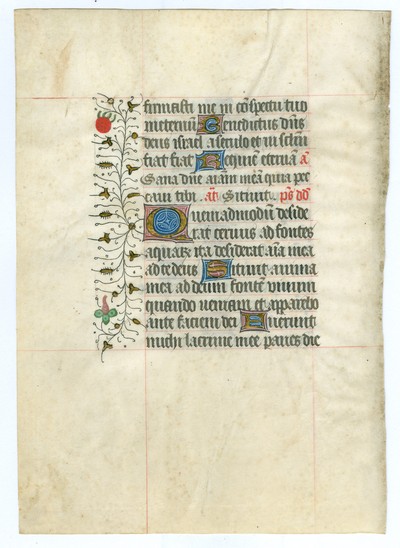 firmasti me in cōspectu tuo
ineternū Benedictus dn̄s
deus israel a seculo et in sclm̄
fiat fiat Requiem eternā a͞
Sana dn̄e aīam meā quia pec
caui tibi. an̄ Sitiuit. ps̄ dd̄
Quemadmodū deside
rat ceruus ad fontes
aquarꝫ ita desiderat aīa mea
ad te deus Sitiuit anima
mea ad deum fontē viuum
quando ueniam et apparebo
ante faciem dei Fuerunt
michi lacrime mee panes die